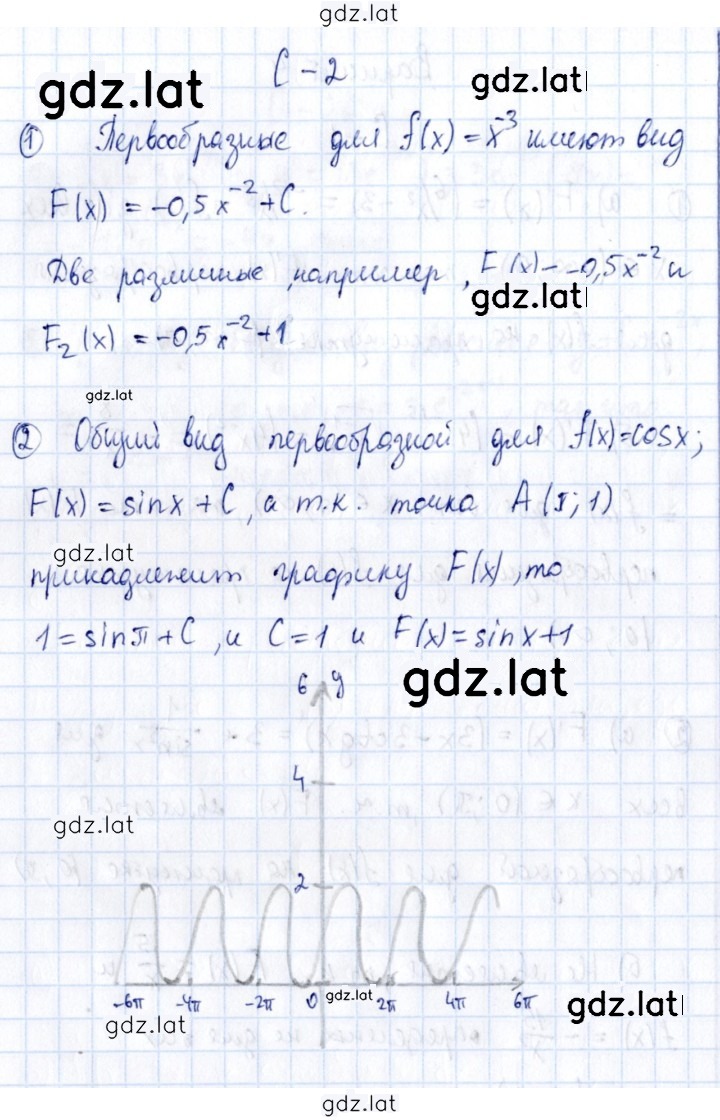 gdz.lat
С-2
gdz.lat
gdz.lat
① Первообразные для f(x) = x⁻³ имеют вид
F(x) = -0,5x⁻² + C.
Две различные, например, F (x) = -0,5x⁻² и
gdz.lat
F₂(x) = -0,5x⁻² + 1
gdz.lat
② Общий вид первообразной для f(x)=cosx;
F(x) = sinx + C, а т.к. точка A (π; 1)
gdz.lat
принадлежит графику F(x), то
1 = sinπ + C, и C = 1 и F(x) = sinx+1
gdz.lat
6 y
4
gdz.lat
2
-6π -4π -2π 0 gdz.lat 2π 4π 6π
gdz.lat
gdz.lat
gdz.lat